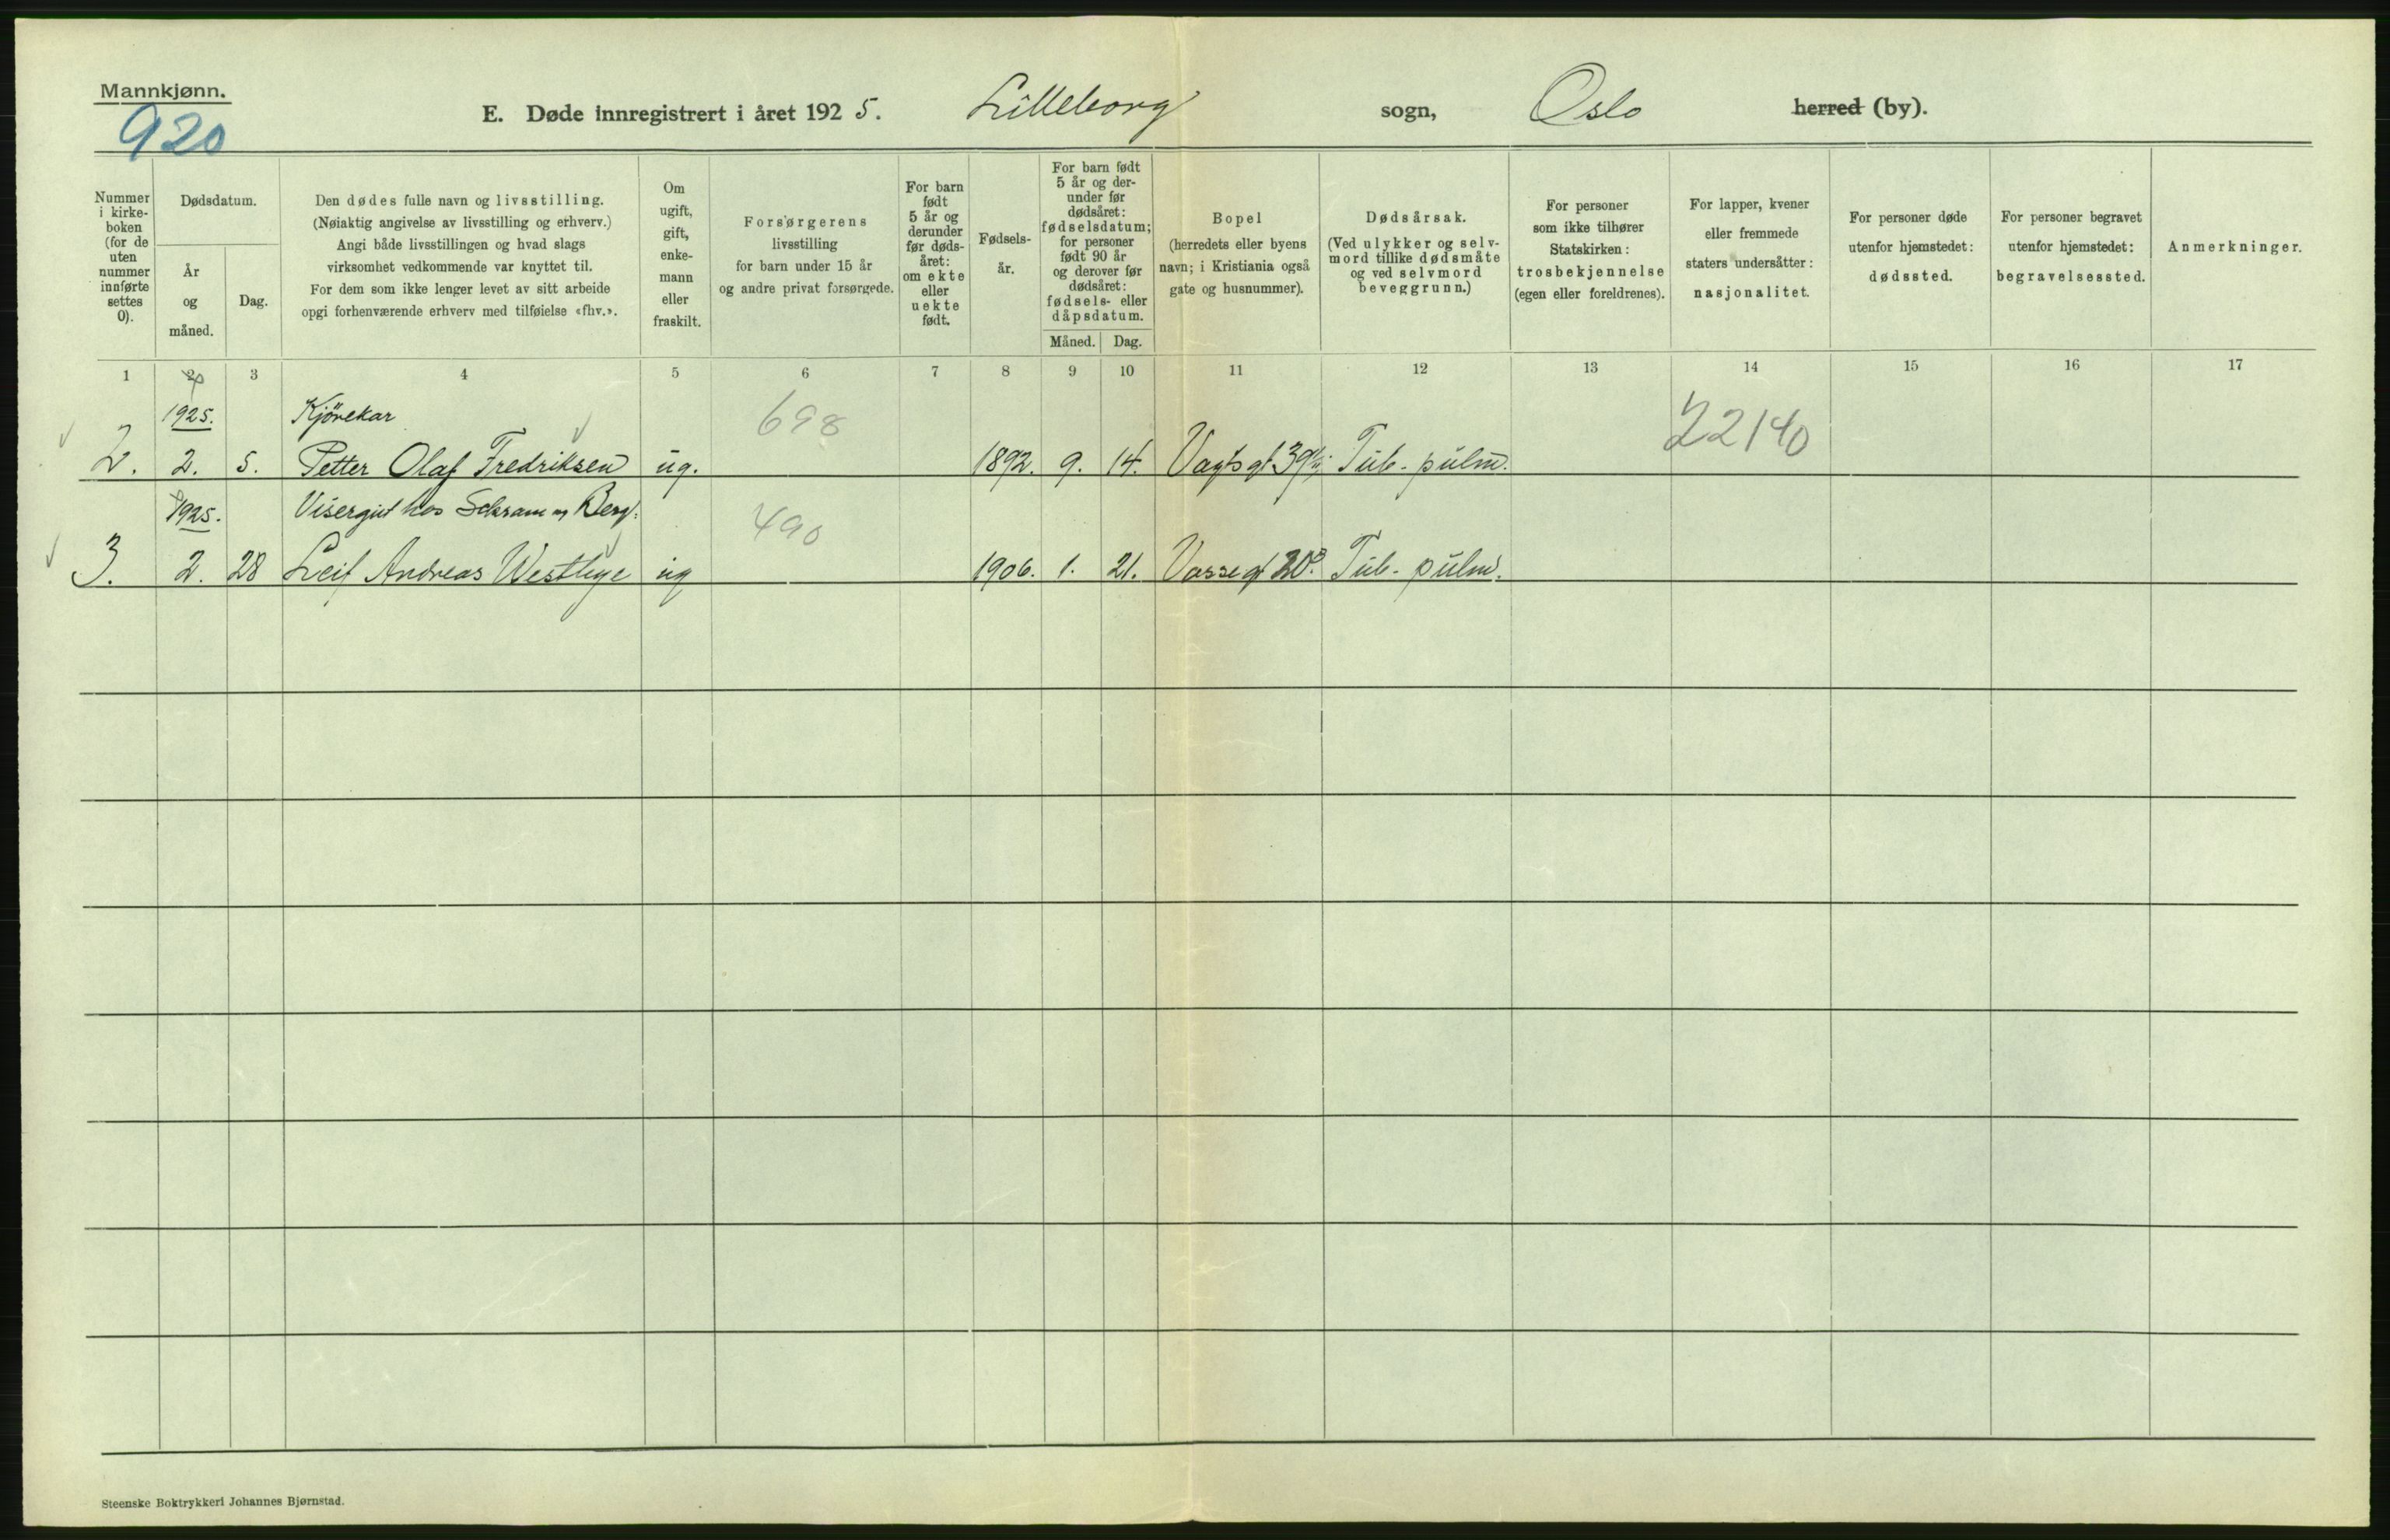 Mannkjønn.
920
E. Døde innregistrert i året 1925. Lilleborg sogn, Oslo herred (by).
Nummer i kirke-boken (for de uten nummer innførte settes 0).
Dødsdatum.
År og måned.
Dag.
Den dødes fulle navn og livsstilling.
(Nøiaktig angivelse av livsstilling og erhverv.)
Angi både livsstillingen og hvad slags
virksomhet vedkommende var knyttet til.
For dem som ikke lenger levet av sitt arbeide
opgi forhenværende erhverv med tilføielse «fhv.».
Om ugift, gift, enke-mann eller fraskilt.
Forsørgerens
livsstilling
for barn under 15 år
og andre privat forsørgede.
For barn født 5 år og derunder før døds-året: om ekte eller uekte født.
Fødsels-år.
For barn født 5 år og der-under før dødsåret: fødselsdatum; for personer født 90 år og derover før dødsåret: fødsels- eller dåpsdatum.
Måned. Dag.
Bopel
(herredets eller byens
navn; i Kristiania også
gate og husnummer).
Dødsårsak.
(Ved ulykker og selv-
mord tillike dødsmåte
og ved selvmord
beveggrunn.)
For personer
som ikke tilhører
Statskirken:
trosbekjennelse
(egen eller foreldrenes).
For lapper, kvener
eller fremmede
staters undersåtter:
nasjonalitet.
For personer døde
utenfor hjemstedet:
dødssted.
For personer begravet
utenfor hjemstedet:
begravelsessted.
Anmerkninger.
1 2 3 4 5 6 7 8 9 10 11 12 13 14 15 16 17
1925. Kjörekar 698 22140
2. 2. 5. Petter Olaf Fredriksen ug. 1892. 9. 14. Vogts gt 39 Tub. pulm.
1925. Visergut hos Schram og Berg. 490
3. 2. 28 Leif Andreas Westlye ug 1906. 1. 21. Vossegt 20 Tub. pulm.
Steenske Boktrykkeri Johannes Bjørnstad.